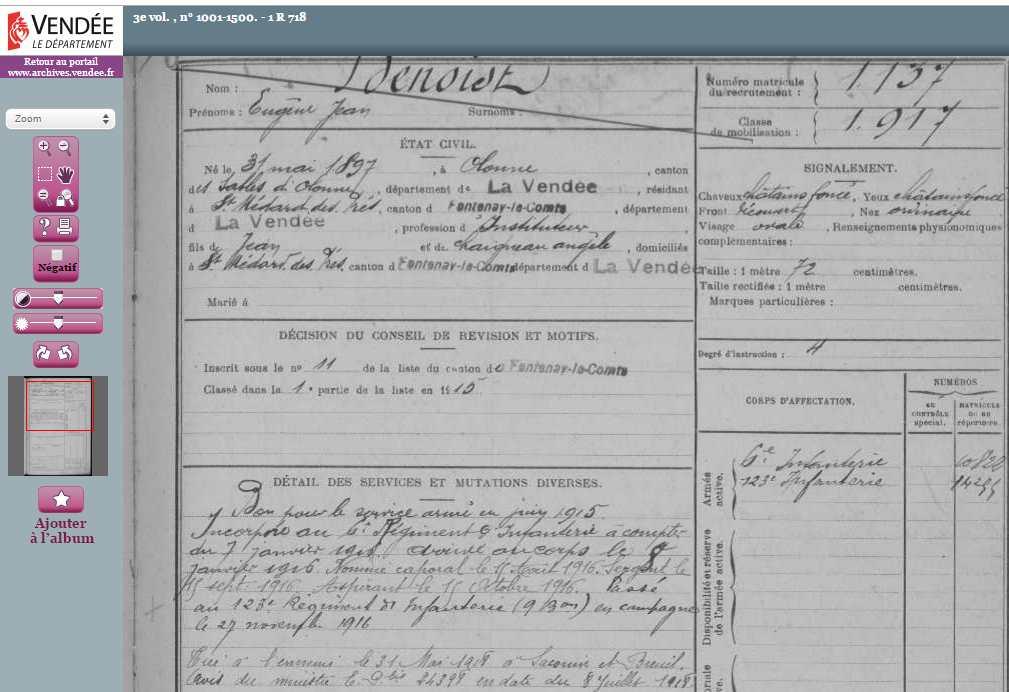 VENDÉE
LE DÉPARTEMENT
Retour au portail
www.archives.vendee.fr
3e vol. , n° 1001-1500. - 1 R 718
Zoom
Négatif
Ajouter
à l'album
Nom : Benoist
Prénoms : Eugène Jean Surnoms :
Numéro matricule
du recrutement : 1.137
Classe
de mobilisation : 1.917
ÉTAT CIVIL.
Né le 31 mai 1897, à Olonne, canton
des Sables d'Olonne, département de La Vendée, résidant
à St Médard des Prés, canton d Fontenay-le-Comte, département
d La Vendée, profession d'Instituteur,
fils de Jean et de Chaigneau Angèle, domiciliés
à St Médard des Prés, canton d Fontenay-le-Comte département d La Vendée
Marié à
SIGNALEMENT.
Cheveux châtains foncé, Yeux châtains foncé
Front découvert, Nez
Visage ovale, Renseignements physionomiques
complémentaires :
Taille : 1 mètre 72 centimètres.
Taille rectifiée : 1 mètre centimètres.
Marques particulières :
Degré d'instruction : 4
DÉCISION DU CONSEIL DE REVISION ET MOTIFS.
Inscrit sous le n° 11 de la liste du canton de Fontenay-le-Comte
Classé dans la 1e partie de la liste en 1915.
CORPS D'AFFECTATION.
NUMÉROS
au
contrôle
spécial.
matricule
ou au
répertoire.
Armée
active.
6e Infanterie
123e Infanterie
Disponibilité et réserve
de l'armée active.
DÉTAIL DES SERVICES ET MUTATIONS DIVERSES.
Bon pour le service armé en juin 1915.
Incorporé au 6e Régiment d'Infanterie à compter
du 7 janvier 1916. Arrivé au corps le 8
janvier 1916. Nommé caporal le 15 Août 1916. Sergent le
15 sept. 1916. Aspirant le 15 Octobre 1916. Passé
au 123e Régiment d'Infanterie (9 Bon) en campagne
le 27 novembre 1916
Tué à l'ennemi le 31 Mai 1918 à Saconin et Breuil.
Avis du ministre le 24398 en date du 8 Juillet 1918.